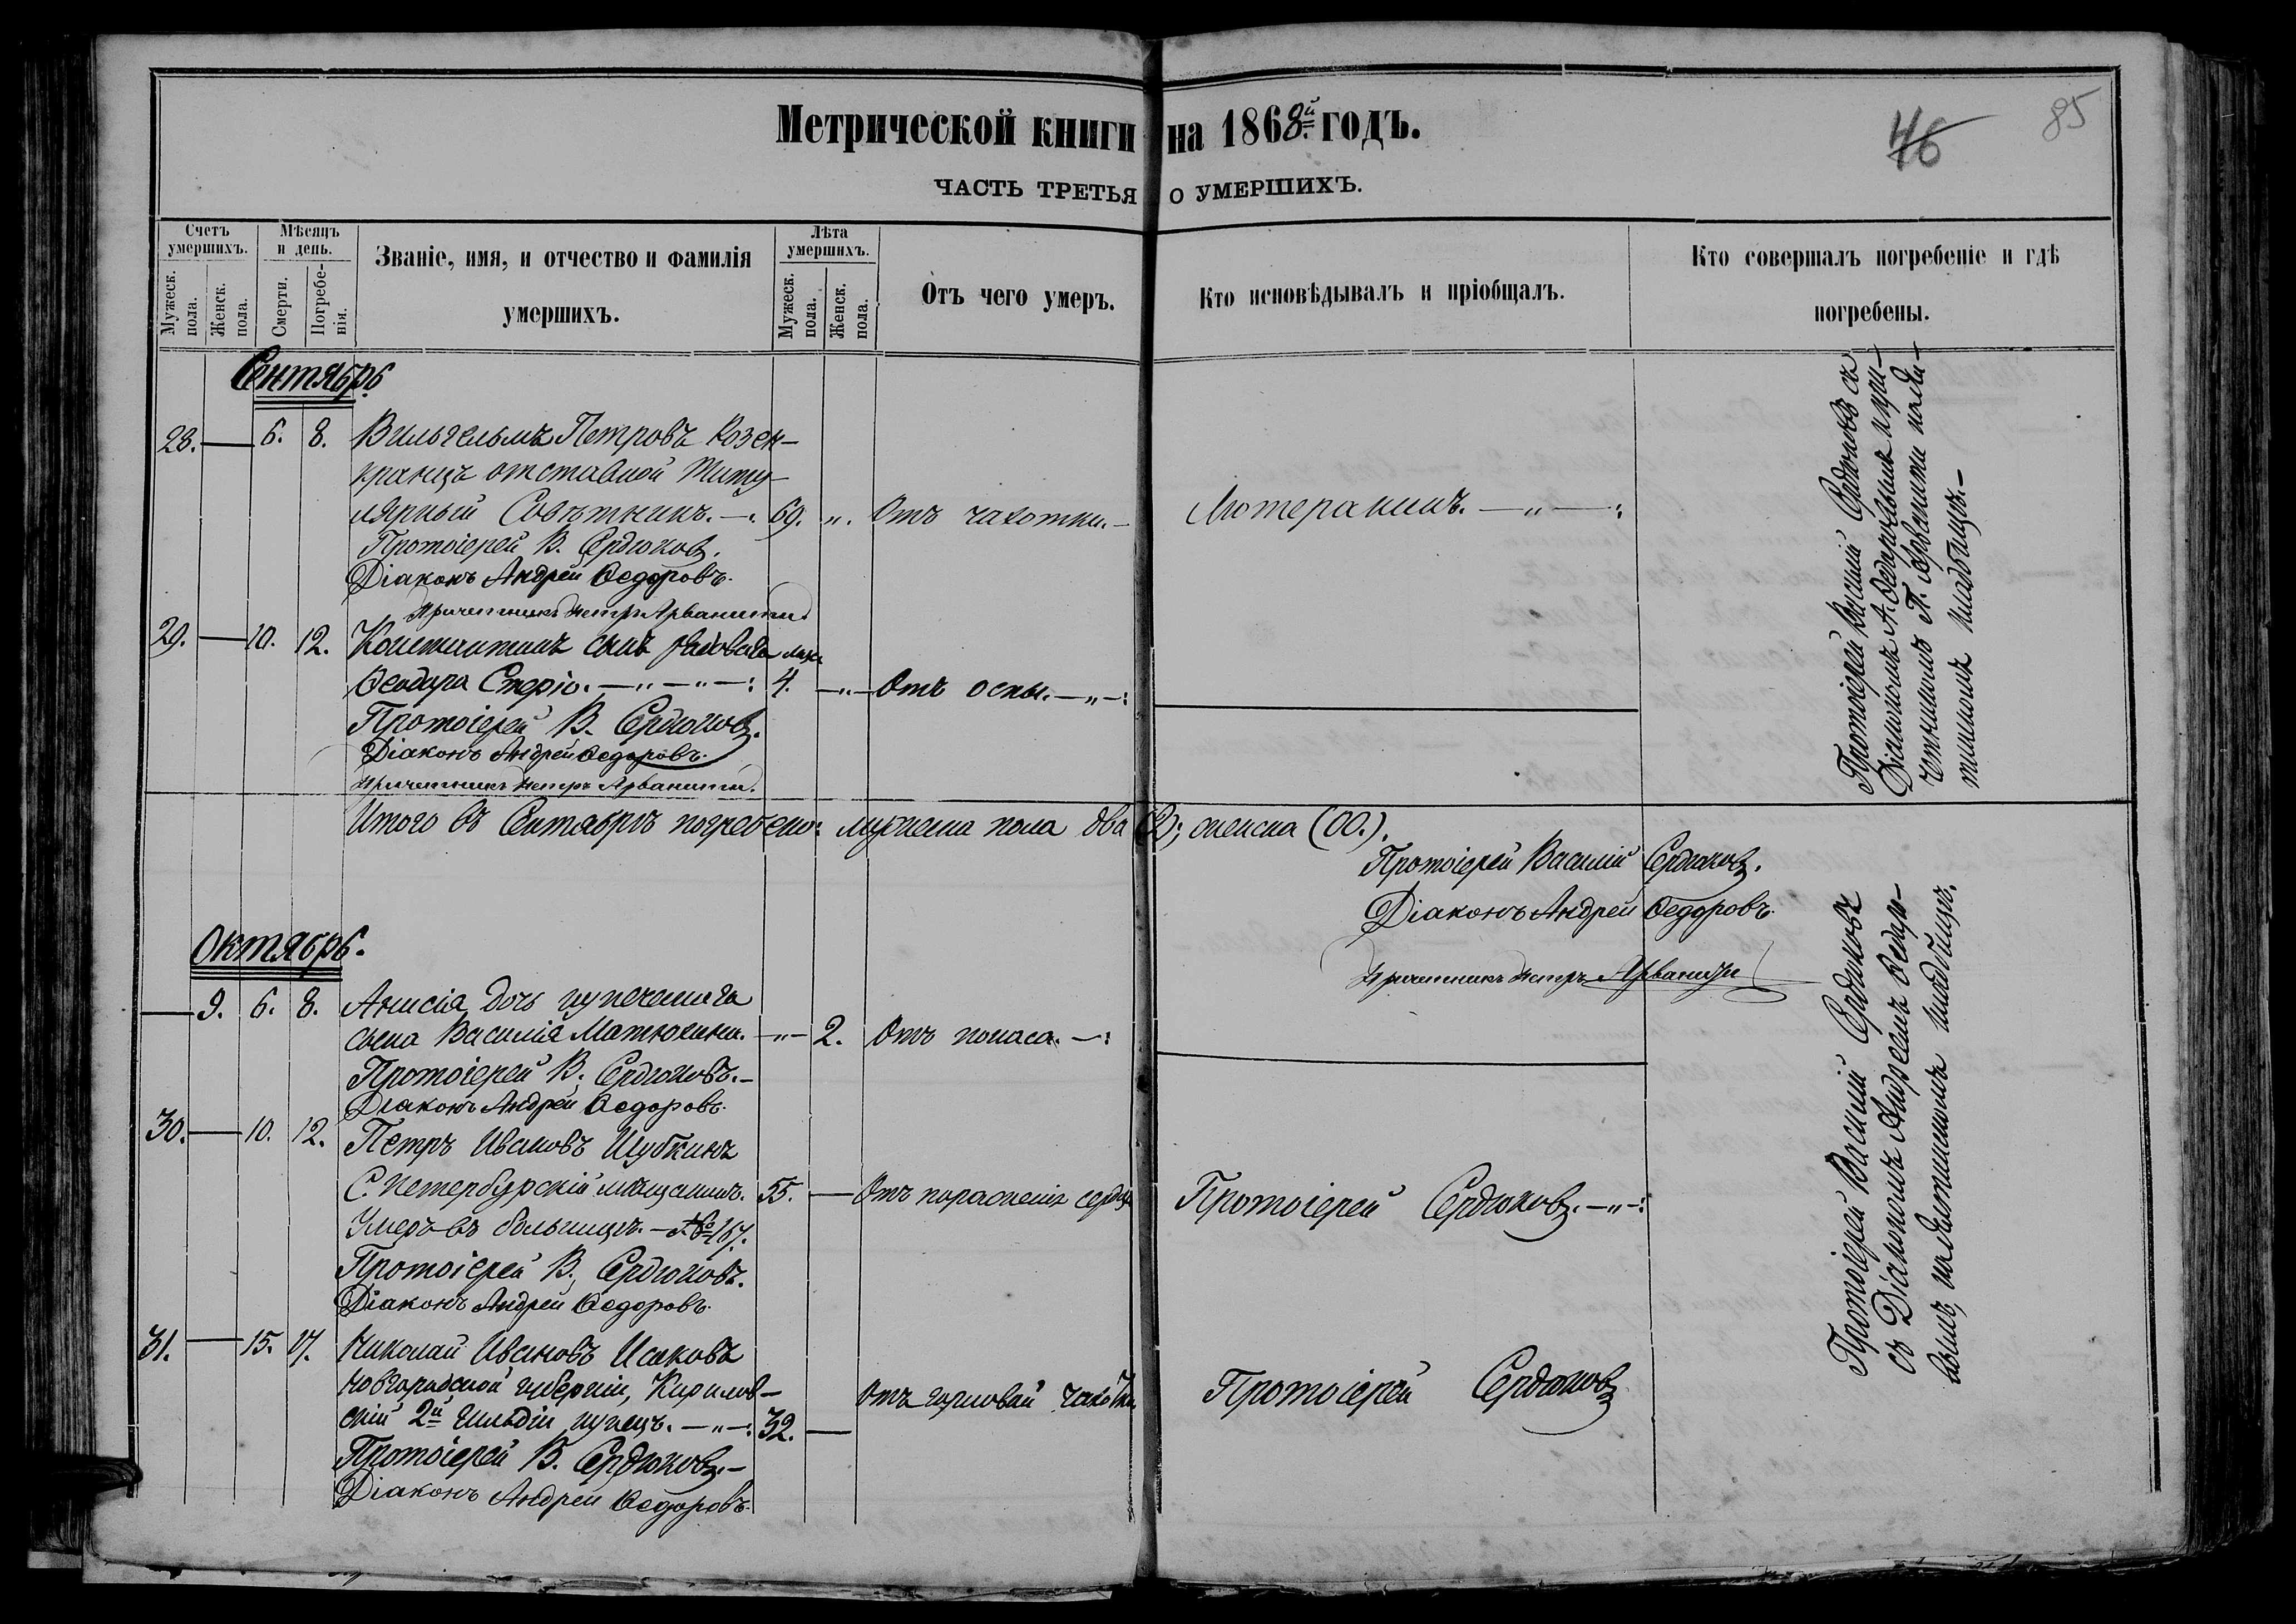 Метрической книги на 1868й годъ.
46
85
ЧАСТЬ ТРЕТЬЯ О УМЕРШИХЪ.
Счетъ умершихъ.
Мужеск. пола.
Женск. пола.
Мѣсяцъ и день.
Смерти.
Погребенія.
Званіе, имя, и отчество и фамилія
умершихъ.
Лѣта умершихъ.
Мужеск. пола.
Женск. пола.
Отъ чего умеръ.
Кто исповѣдывалъ и пріобщалъ.
Кто совершалъ погребеніе и гдѣ
погребены.
Сентябрь
28. — 6. 8. Вильгельмъ Петровъ Розен-
кранцъ отставной Титу-
лярный Совѣтникъ. — 69. „. Отъ чахотки. — Лютеранинъ. — „ — :
Протоіерей В. Сердюковъ.
Діаконъ Андрей Ѳедоровъ.
Причетникъ Петръ Арванити.
29. — 10. 12. Константинъ сынъ
Ѳеодора Стеріо. — „ — „ — : 4. — „ — Отъ оспы. — „ — :
Протоіерей В. Сердюковъ.
Діаконъ Андрей Ѳедоровъ.
Причетникъ Петръ Арванити.
Протоіерей Василій Сердюковъ съ
Діакономъ А. Ѳедоровымъ и при-
четникомъ П. Арванити на Ди-
миномъ кладбищѣ. —
Итого въ Сентябрѣ погребено: мужеска пола два (2); женска (00.).
Протоіерей Василій Сердюковъ.
Діаконъ Андрей Ѳедоровъ.
Причетникъ Петръ Арванити
Октябрь.
— 9. 6. 8. Анисія дочь купеческаго
сына Василія Матюхина. — „ — 2. Отъ поноса. — :
Протоіерей В. Сердюковъ. —
Діаконъ Андрей Ѳедоровъ.
30. — 10. 12. Петръ Ивановъ Шубкинъ
С. Петербурскій мѣщанинъ. 55. — Отъ пораженія сердца Протоіерей Сердюковъ. — „ — :
Умеръ въ больницѣ. — № 167.
Протоіерей В. Сердюковъ.
Діаконъ Андрей Ѳедоровъ.
31. — 15. 17. Николай Ивановъ Исаковъ
Новгородской губерніи, Кирилов-
скій 2й Гильдіи купецъ. — „ — : 32. — Отъ горловой чахотки Протоіерей Сердюковъ
Протоіерей В. Сердюковъ. —
Діаконъ Андрей Ѳедоровъ.
Протоіерей Василій Сердюковъ
съ Діакономъ Андреемъ Ѳедоро-
вымъ, на кладбищѣ.